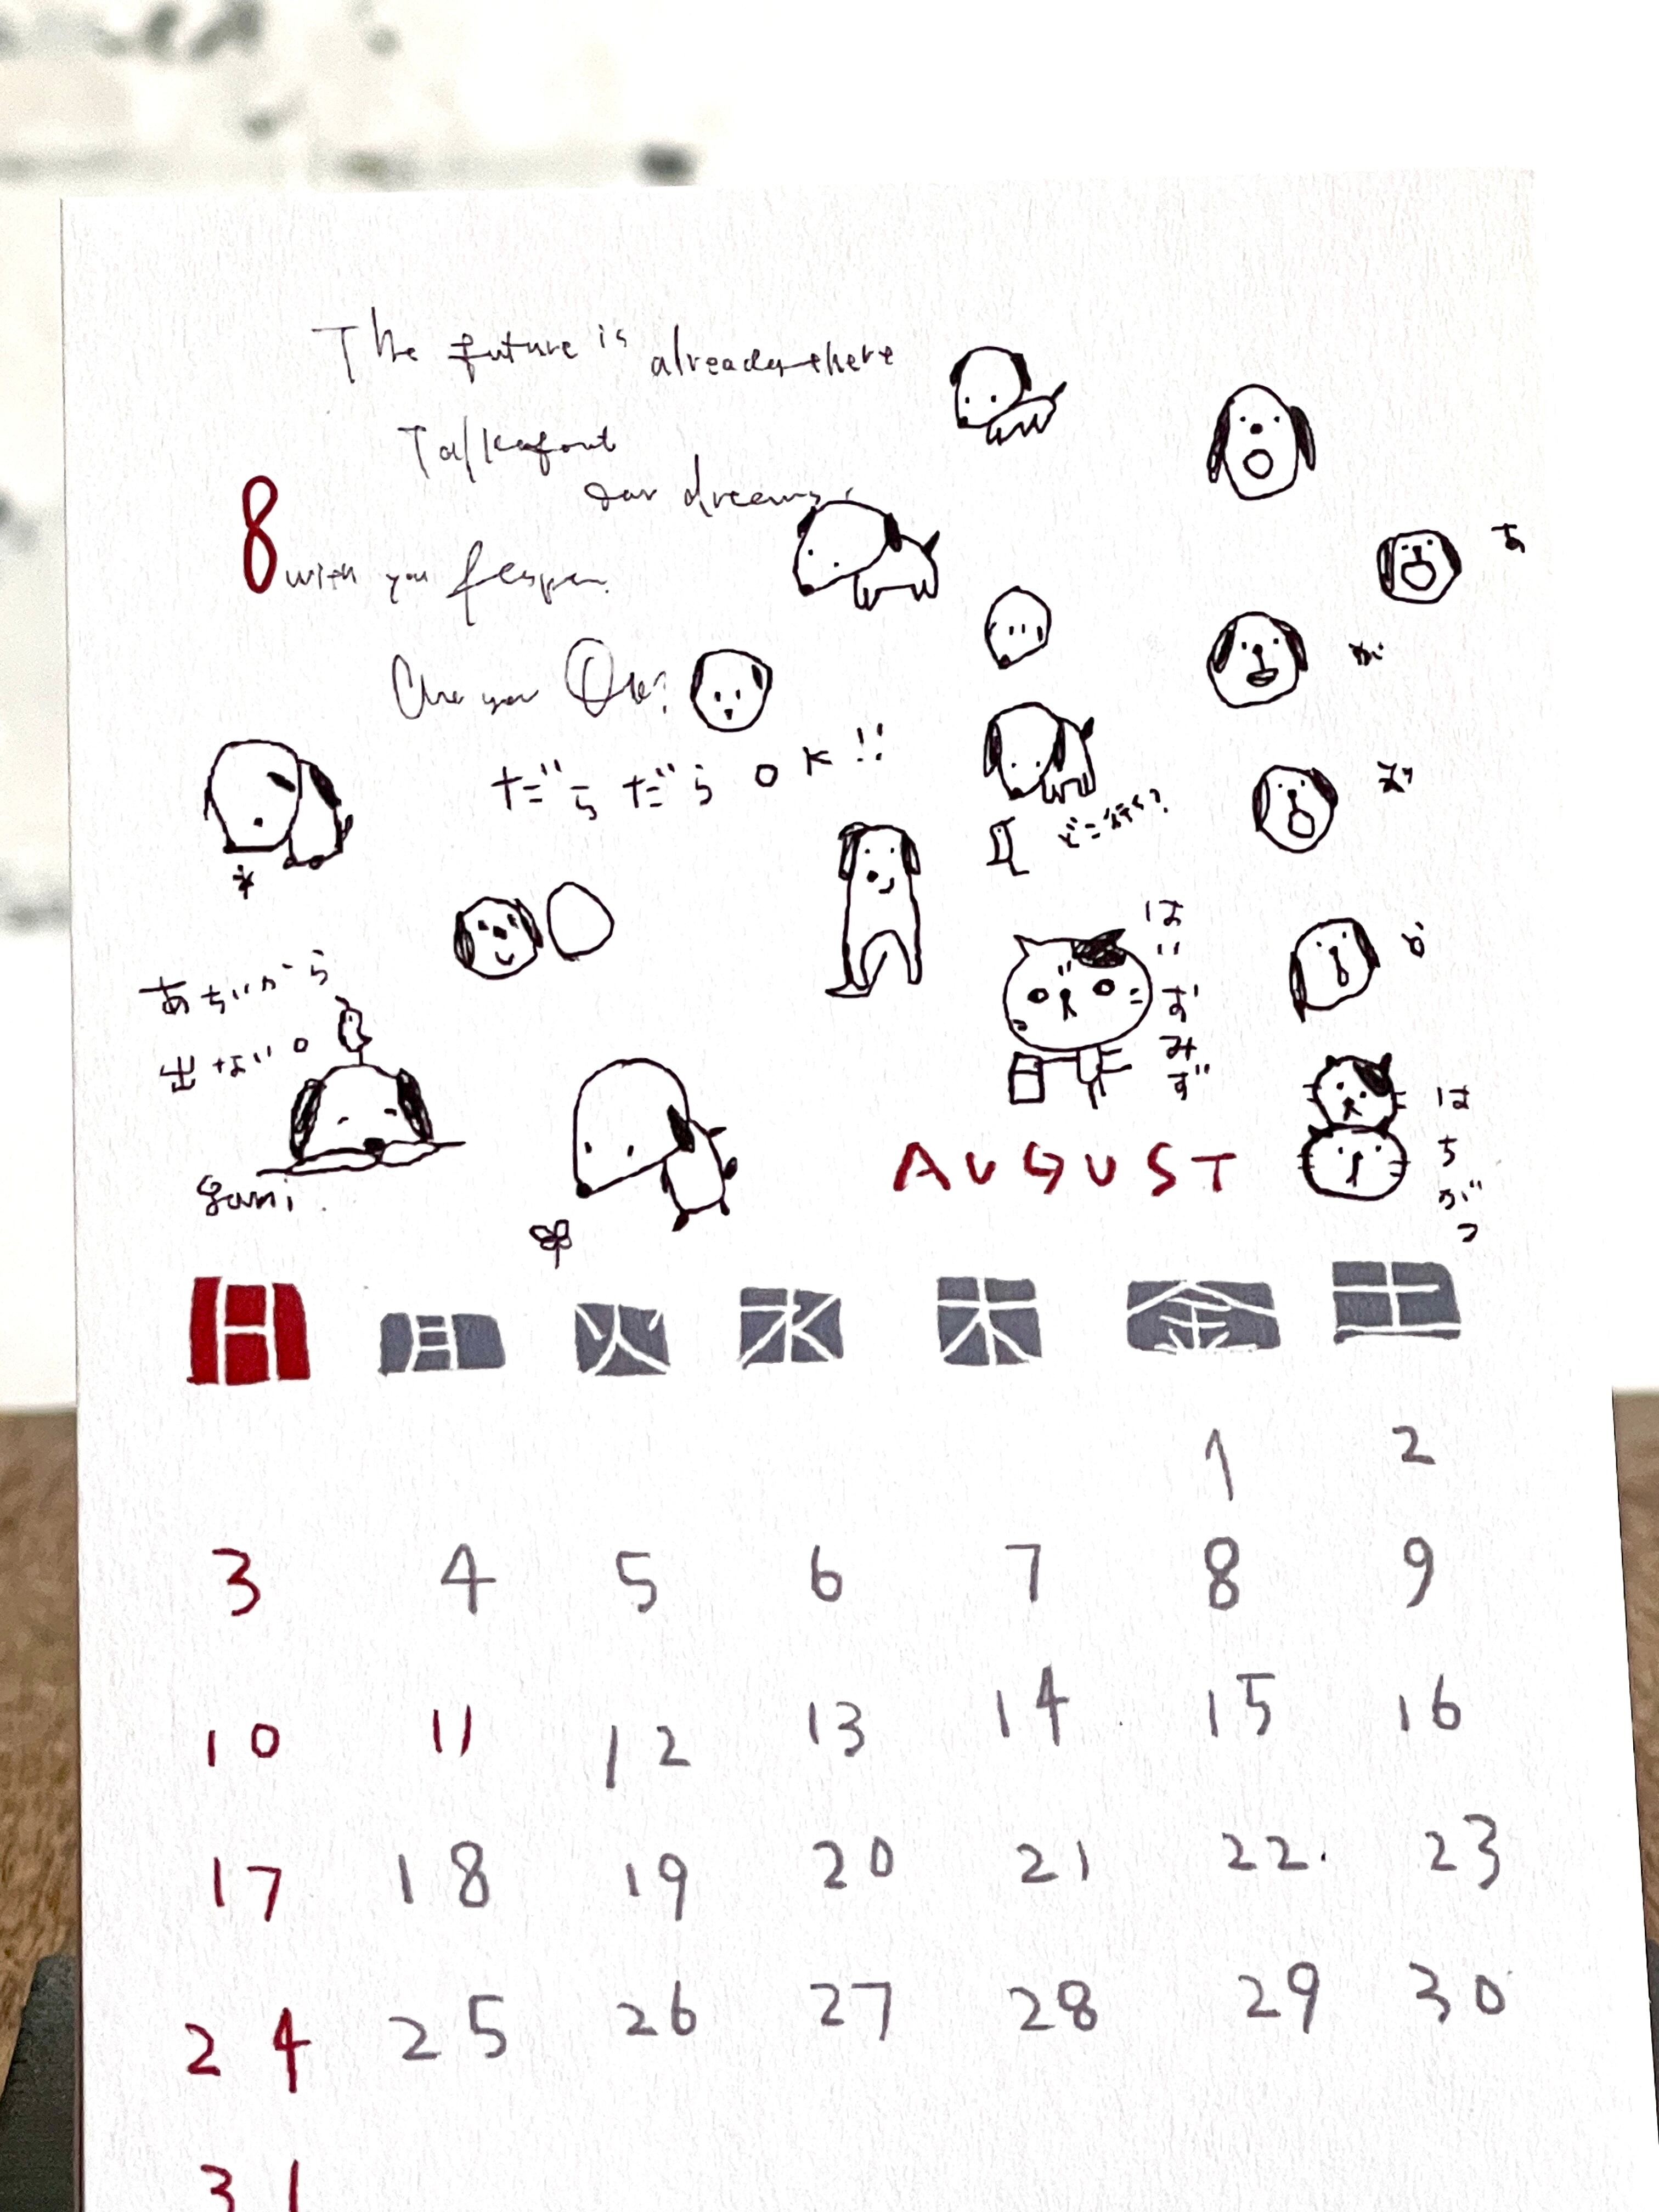 The future is already there
Talk about
our dreams.
8 with you
Are you Ok?
だらだら OK!!
どこ行く?
あ
が
え
お
あぢいから
出ない。
はい
おみず
gami
AUGUST
はちがつ
日 月 火 水 木 金 土
1 2
3 4 5 6 7 8 9
10 11 12 13 14 15 16
17 18 19 20 21 22 23
24 25 26 27 28 29 30
31